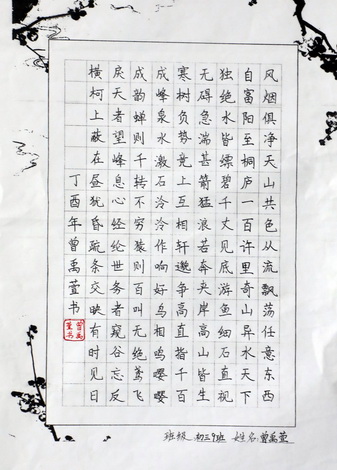 风烟俱净天山共色从流飘荡任意东西
自富阳至桐庐一百许里奇山异水天下
独绝水皆缥碧千丈见底游鱼细石直视
无碍急湍甚箭猛浪若奔夹岸高山皆生
寒树负势竞上互相轩邈争高直指千百
成峰泉水激石泠泠作响好鸟相鸣嘤嘤
成韵蝉则千转不穷猿则百叫无绝鸢飞
戾天者望峰息心经纶世务者窥谷忘反
横柯上蔽在昼犹昏疏条交映有时见日
丁酉年曾禹萱书
曾禹
萱书
班级 初三9班 姓名 曾禹萱